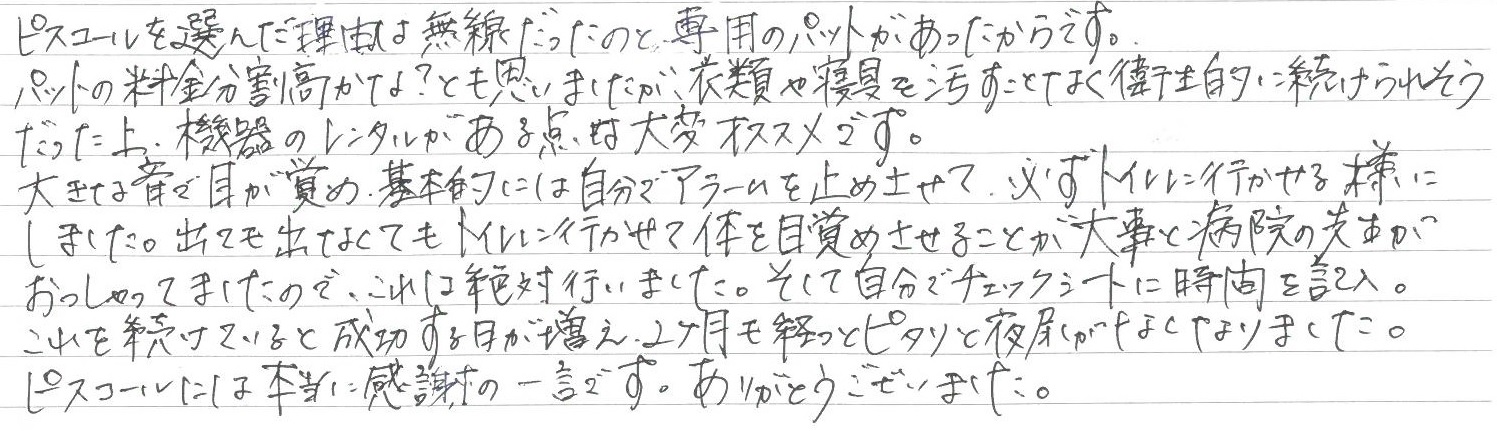 ピスコールを選んだ理由は無線だったのと、専用のパットがあったからです。
パットの料金分割高かな?とも思いましたが、衣類や寝具を汚すことなく衛生的に続けられそう
だった上、機器のレンタルがある点は大変オススメです。
大きな音で目が覚め、基本的には自分でアラームを止めさせて、必ずトイレに行かせる様に
しました。出ても出なくてもトイレに行かせて体を目覚めさせることが大事と病院の先生が
おっしゃってましたので、これは絶対行いました。そして自分でチェックシートに時間を記入。
これを続けていると成功する日が増え、2ヶ月も経つとピタリと夜尿がなくなりました。
ピスコールには本当に感謝の一言です。ありがとうございました。